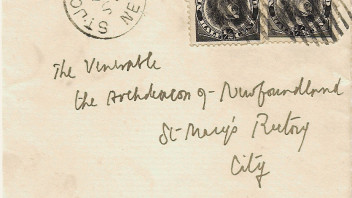 ST. JO
NE
The Venerable
the Archdeacon of Newfoundland
St Mary's Rectory
City